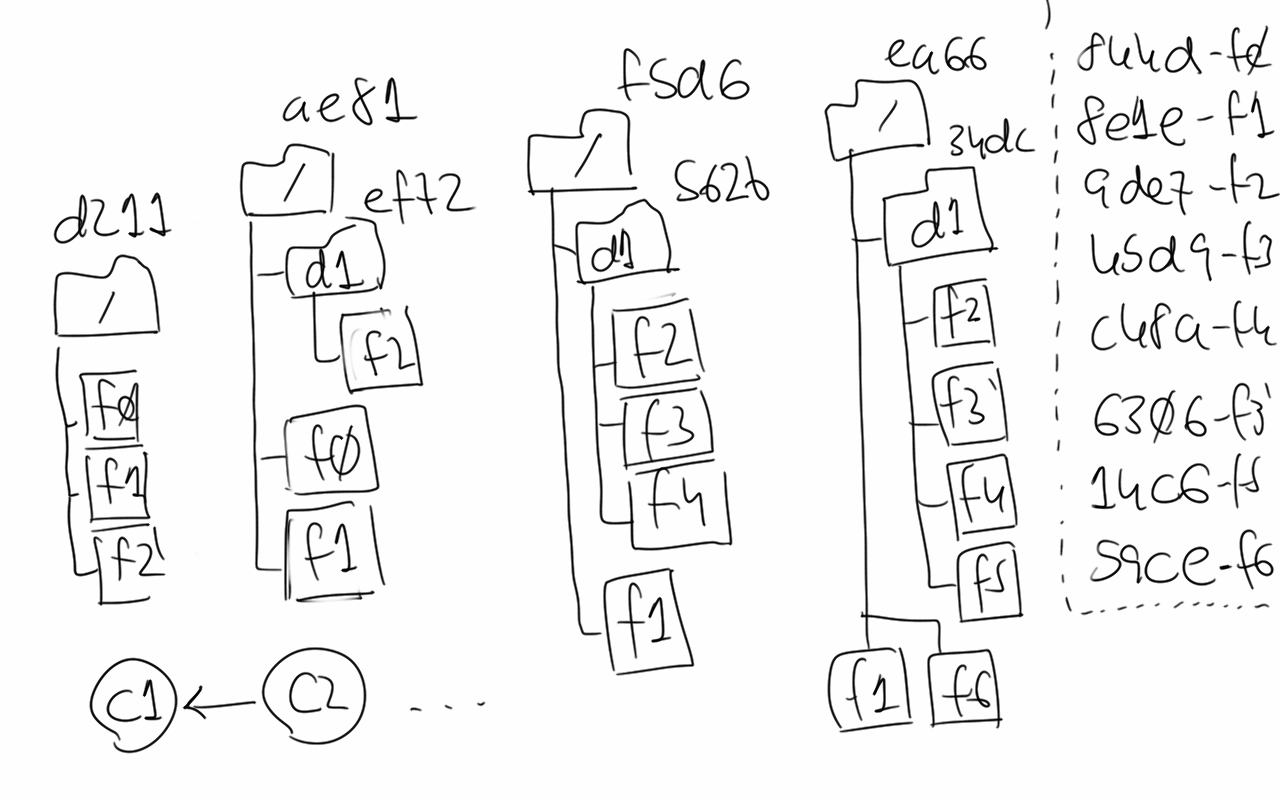 d211
/
f0
f1
f2
ae81
/
ef72
d1
f2
f0
f1
f5d6
/
562b
d1
f2
f3
f4
f1
ea66
/
34dc
d1
f2
f3'
f4
f5
f1 f6
844d-f0
8e1e-f1
9de7-f2
45d9-f3
c48a-f4
6306-f3'
14c6-f5
59ce-f6
C1 ← C2 ...